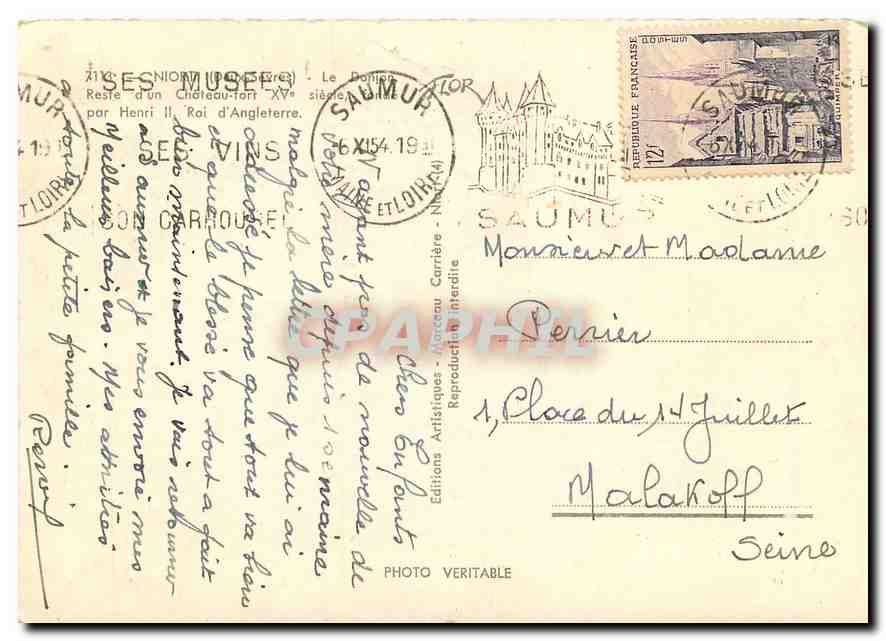 7114 - NIORT (Deux-Sèvres) - Le Donjon
Reste d'un Château-fort XVe siècle, fondé
par Henri II, Roi d'Angleterre.
SES MUSÉES
SES VINS
SON CARROUSEL
SAUMUR
6 XI 54
MAINE ET LOIRE
FLOR
SAUMUR
REPUBLIQUE FRANÇAISE
POSTES
12f
QUIMPER
SAUMUR
Chers Enfants
N'ayant pas de nouvelle de
votre mère depuis 1 semaine
malgré la lettre que je lui ai
adressé je pense que tout va bien
et que le blessé va tout a fait
bien maintenant. Je vais retourner
a Saumur et je vous envoie mes
Meilleurs baisers. Mes amitiés
a toute la petite famille.
Editions Artistiques - Marceau Carrière - Niort (4)
Reproduction interdite
PHOTO VERITABLE
Monsieur et Madame
Perrier
1, Place du 14 Juillet
Malakoff
Seine
CPAPHIL